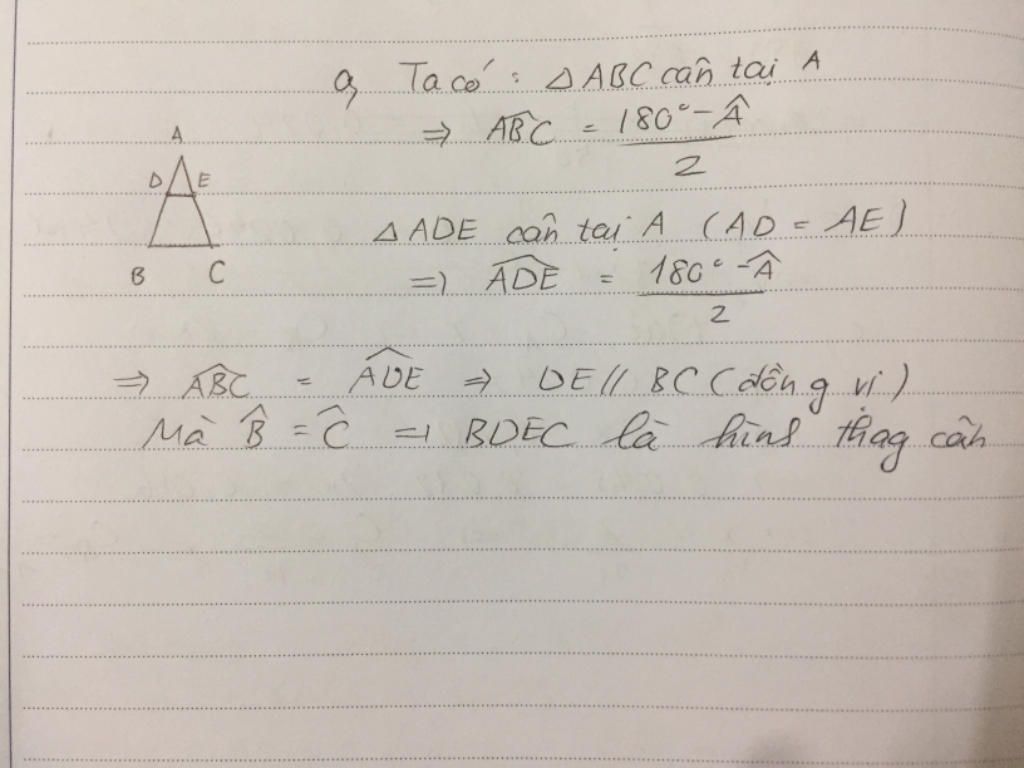 a, Ta có : △ABC cân tại A
⇒ \widehat{ABC} = \frac{180° - \hat{A}}{2}
A
D E
B C
△ADE cân tại A (AD = AE)
⇒ \widehat{ADE} = \frac{180° - \hat{A}}{2}
⇒ \widehat{ABC} = \widehat{ADE} ⇒ DE // BC (đồng vị)
Mà \hat{B} = \hat{C} ⇒ BDEC là hình thag cân